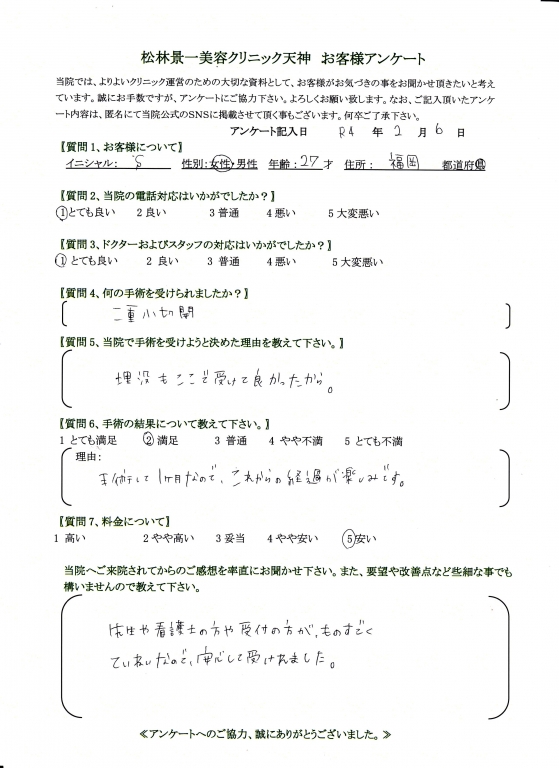 松林景一美容クリニック天神　お客様アンケート
当院では、よりよいクリニック運営のための大切な資料として、お客様がお気づきの事をお聞かせ頂きたいと考え
ています。誠にお手数ですが、アンケートにご協力下さい。よろしくお願い致します。なお、ご記入頂いたアンケ
ート内容は、匿名にて当院公式のSNSに掲載させて頂く事もございます。何卒ご了承下さい。
アンケート記入日　R4　年　2　月　6　日
【質問1、お客様について】
イニシャル：　S　性別：女性・男性　年齢：27才　住所：　福岡　都道府県
【質問2、当院の電話対応はいかがでしたか？】
1とても良い　2 良い　3 普通　4 悪い　5 大変悪い
【質問3、ドクターおよびスタッフの対応はいかがでしたか？】
1 とても良い　2 良い　3 普通　4 悪い　5 大変悪い
【質問4、何の手術を受けられましたか？】
二重小切開
【質問5、当院で手術を受けようと決めた理由を教えて下さい。】
埋没もここで受けて良かったから。
【質問6、手術の結果について教えて下さい。】
1 とても満足　2 満足　3 普通　4 やや不満　5 とても不満
理由：
手術して1ヶ月なので、これからの経過が楽しみです。
【質問7、料金について】
1 高い　2 やや高い　3 妥当　4 やや安い　5 安い
当院へご来院されてからのご感想を率直にお聞かせ下さい。また、要望や改善点など些細な事でも
構いませんので教えて下さい。
先生や看護士の方や受付の方が、ものすごく
ていねいなので、安心して受けれました。
≪アンケートへのご協力、誠にありがとうございました。≫